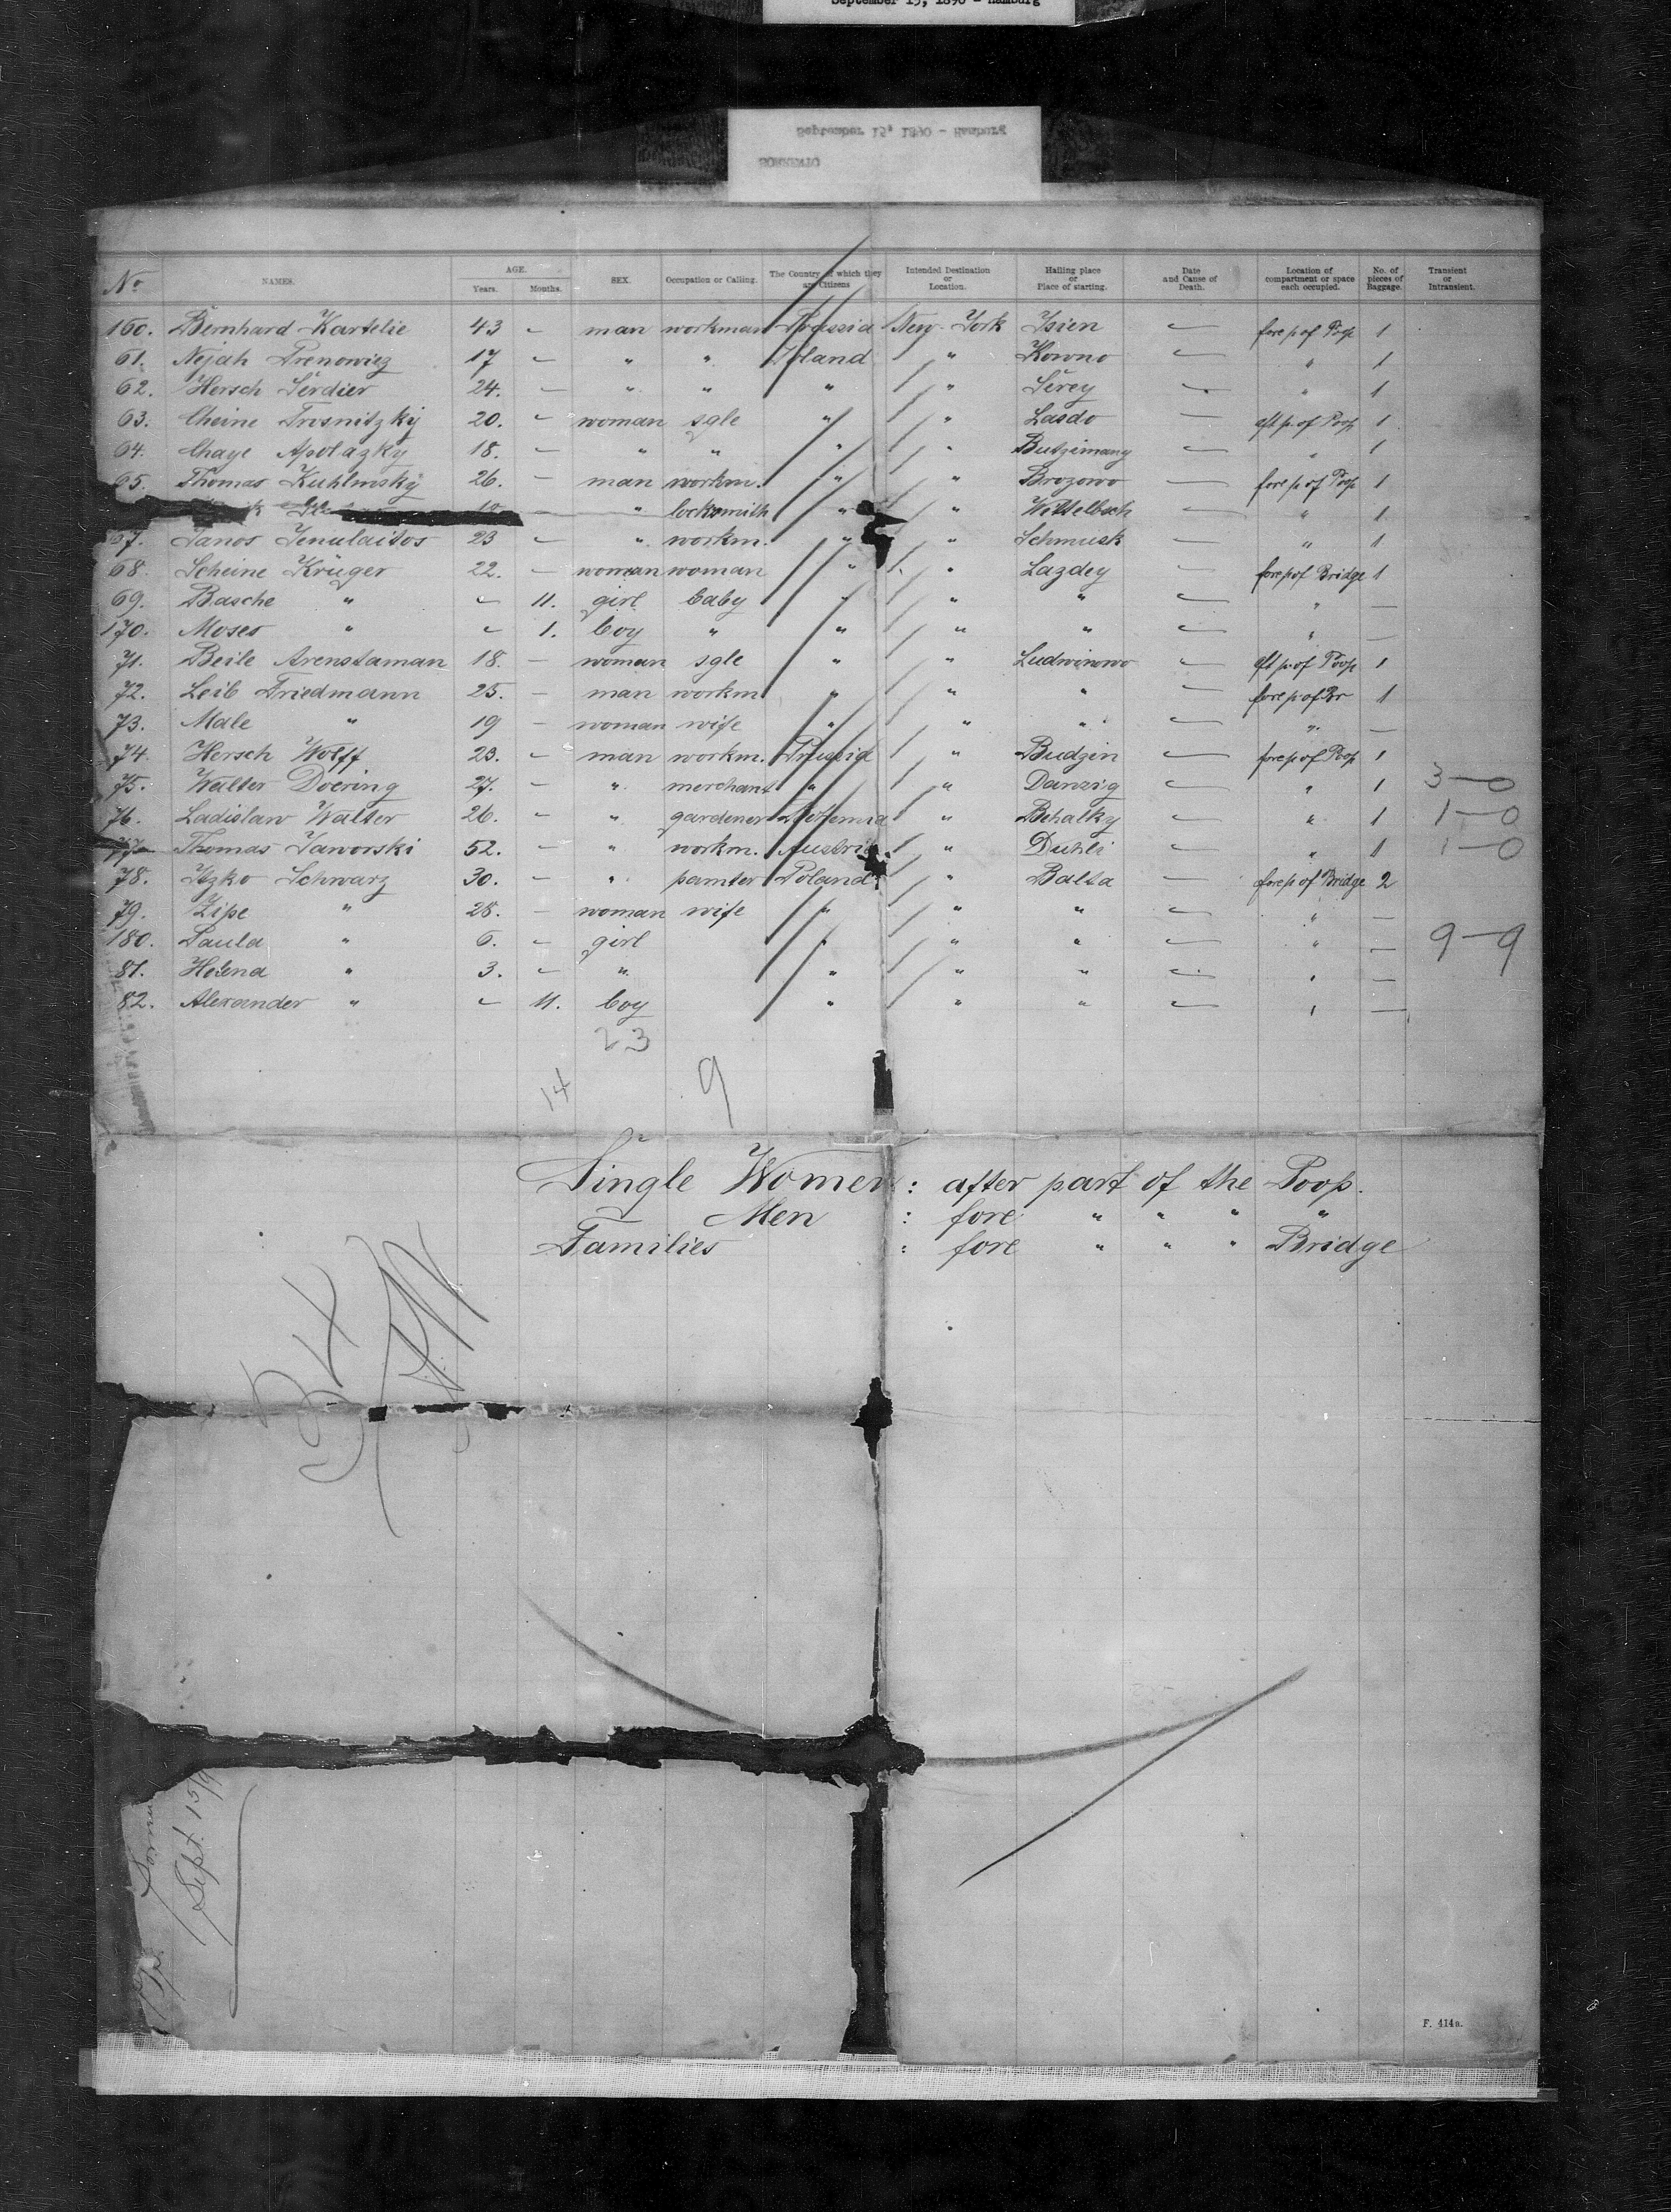 September 15, 1890 - Hamburg
September 15, 1890 - Hamburg
SORRENTO
No. NAMES. AGE. Years. Months. SEX. Occupation or Calling. The Country of which they are Citizens Intended Destination or Location. Hailing place or Place of starting. Date and Cause of Death. Location of compartment or space each occupied. No. of pieces of Baggage. Transient or Intransient.
160. Bernhard Kartelie 43 - man workman Prussia New York Isien - fore p of Poop 1
61. Nejah Trenowicz 17 - " " Poland " Kowno - " 1
62. Hersch Serdier 24. - " " " " Serey - " 1
63. Cheine Trosnitzky 20. - woman sgle " " Lasdo - aft p. of Poop 1
64. Chaye Apolazky 18. - " " " " Butzimany - " 1
65. Thomas Kuhlmsky 26. - man workm. " " Brozowo - fore p of Poop 1
- " locksmith " " Wittelbsch - " 1
67. Janos Jenulaitos 23 - " workm. " " Schmusk - " 1
68. Scheine Krüger 22. - woman woman " " Lazdey - fore p of Bridge 1
69. Basche " - 11. girl baby " " " - " -
170. Moses " - 1. boy " " " " - " -
71. Beile Arenstaman 18. - woman sgle " " Ludwinowo - aft p. of Poop 1
72. Leib Friedmann 25. - man workm " " " - fore p of Br 1
73. Male " 19 - woman wife " " " - " -
74. Hersch Wolff 23. - man workm. Prussia " Budzin - fore p of Poop 1
75. Walter Doering 27. - " merchant " " Danzig - " 1 3-0
76. Ladislaw Walter 26. - " gardener Bohemia " Behalky - " 1 1-0
77 Thomas Jaworski 52. - " workm. Austria " Duhli - " 1 1-0
78. Itzko Schwarz 30. - " painter Poland " Balta - fore p of Bridge 2
79. Zipe " 28. - woman wife " " " - " -
180. Paula " 6. - girl " " " - " - 9-9
81. Helena " 3. - " " " " - " -
82. Alexander " - 11. boy " " " - " -
23
14 9
Single Women : after part of the Poop.
Men : fore " " " "
Families : fore " " " Bridge
Sept. 15/9
F. 414a.